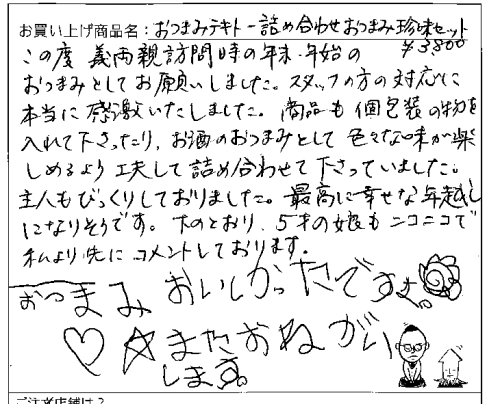 お買い上げ商品名：おつまみテキトー詰め合わせおつまみ珍味セット
¥3800
この度 義両親訪問時の年末・年始の
おつまみとしてお願いしました。スタッフの方の対応に
本当に感激いたしました。商品も個包装の物を
入れて下さったり、お酒のおつまみとして色々な味が楽
しめるよう工夫して詰め合わせて下さっていました。
主人もびっくりしておりました。最高に幸せな年越し
になりそうです。下のとおり、5才の娘もニコニコで
私より先にコメントしております。
おつまみ おいしかったですよ。
またおねがい
します。
ご注文店舗は？